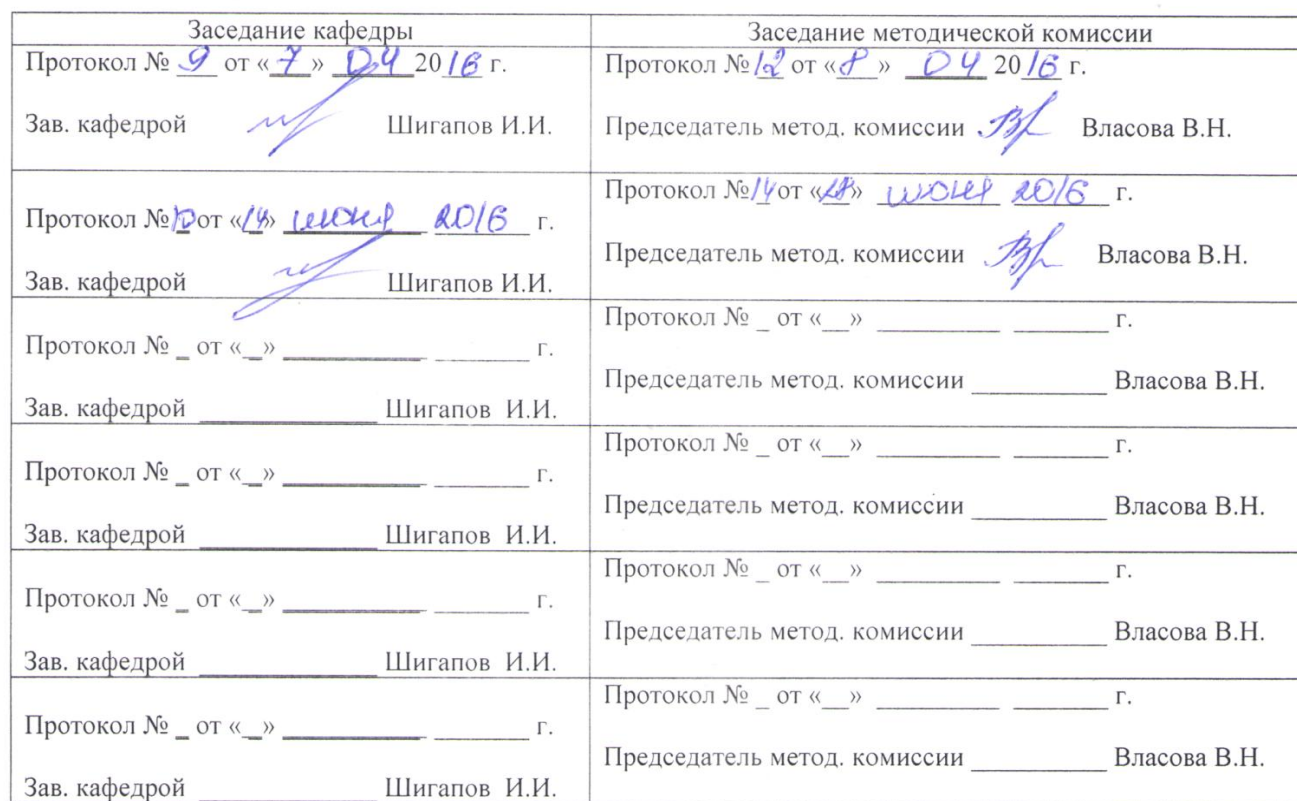 Заседание кафедры
Заседание методической комиссии
Протокол № 9 от «7» 04 2016 г.
Зав. кафедрой Шигапов И.И.
Протокол № 12 от «8» 04 2016 г.
Председатель метод. комиссии Власова В.Н.
Протокол № 10 от «14» июня 2016 г.
Зав. кафедрой Шигапов И.И.
Протокол № 14 от « » июня 2016 г.
Председатель метод. комиссии Власова В.Н.
Протокол № _ от «__» __________ _______ г.
Зав. кафедрой _____________ Шигапов И.И.
Протокол № _ от «__» _________ _______ г.
Председатель метод. комиссии __________ Власова В.Н.
Протокол № _ от «__» __________ _______ г.
Зав. кафедрой _____________ Шигапов И.И.
Протокол № _ от «__» _________ _______ г.
Председатель метод. комиссии __________ Власова В.Н.
Протокол № _ от «__» __________ _______ г.
Зав. кафедрой _____________ Шигапов И.И.
Протокол № _ от «__» _________ _______ г.
Председатель метод. комиссии __________ Власова В.Н.
Протокол № _ от «__» __________ _______ г.
Зав. кафедрой _____________ Шигапов И.И.
Протокол № _ от «__» _________ _______ г.
Председатель метод. комиссии __________ Власова В.Н.